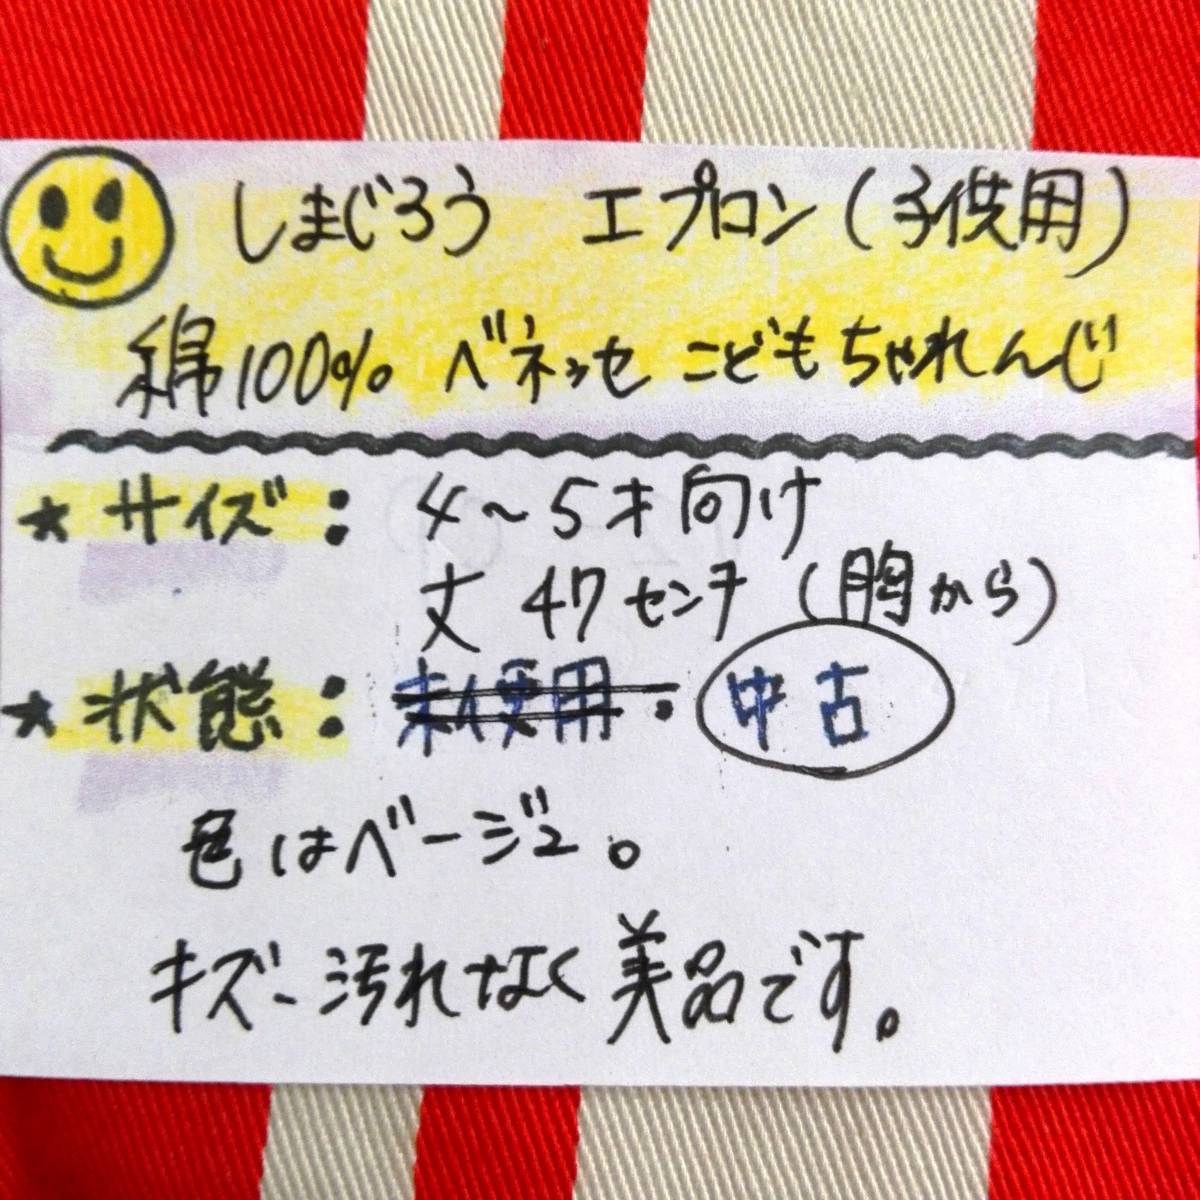 しまじろう エプロン(子供用)
綿100% ベネッセ こどもちゃれんじ
★サイズ: 4～5才向け
丈 47センチ (胸から)
★状態: 未使用・中古
色はベージュ。
キズ、汚れなく美品です。